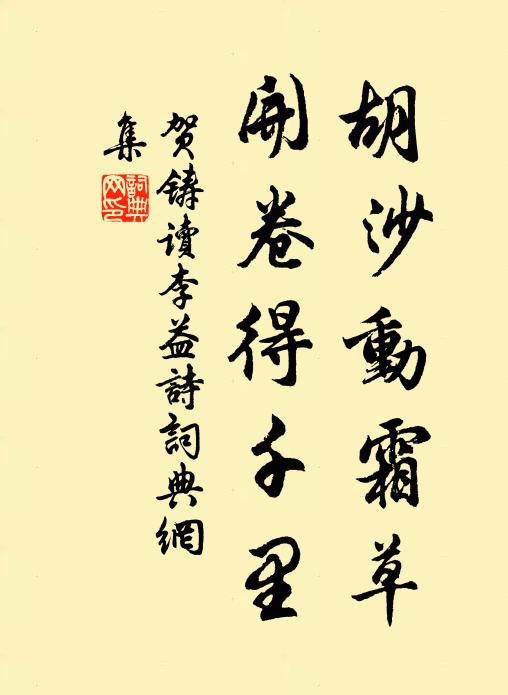 胡沙動霜草
開卷得千里
贺鑄读李益詩詞典網
集
詞典網印